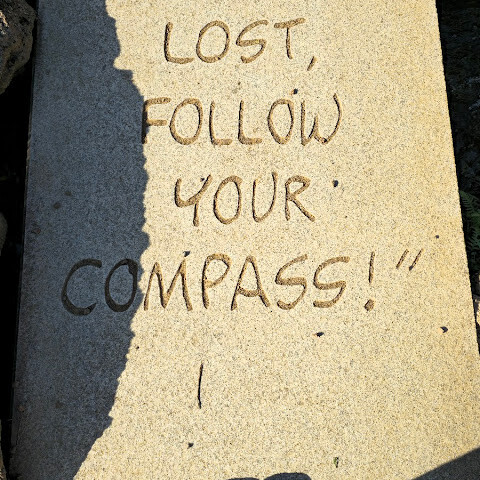 LOST,
FOLLOW
YOUR
COMPASS!"